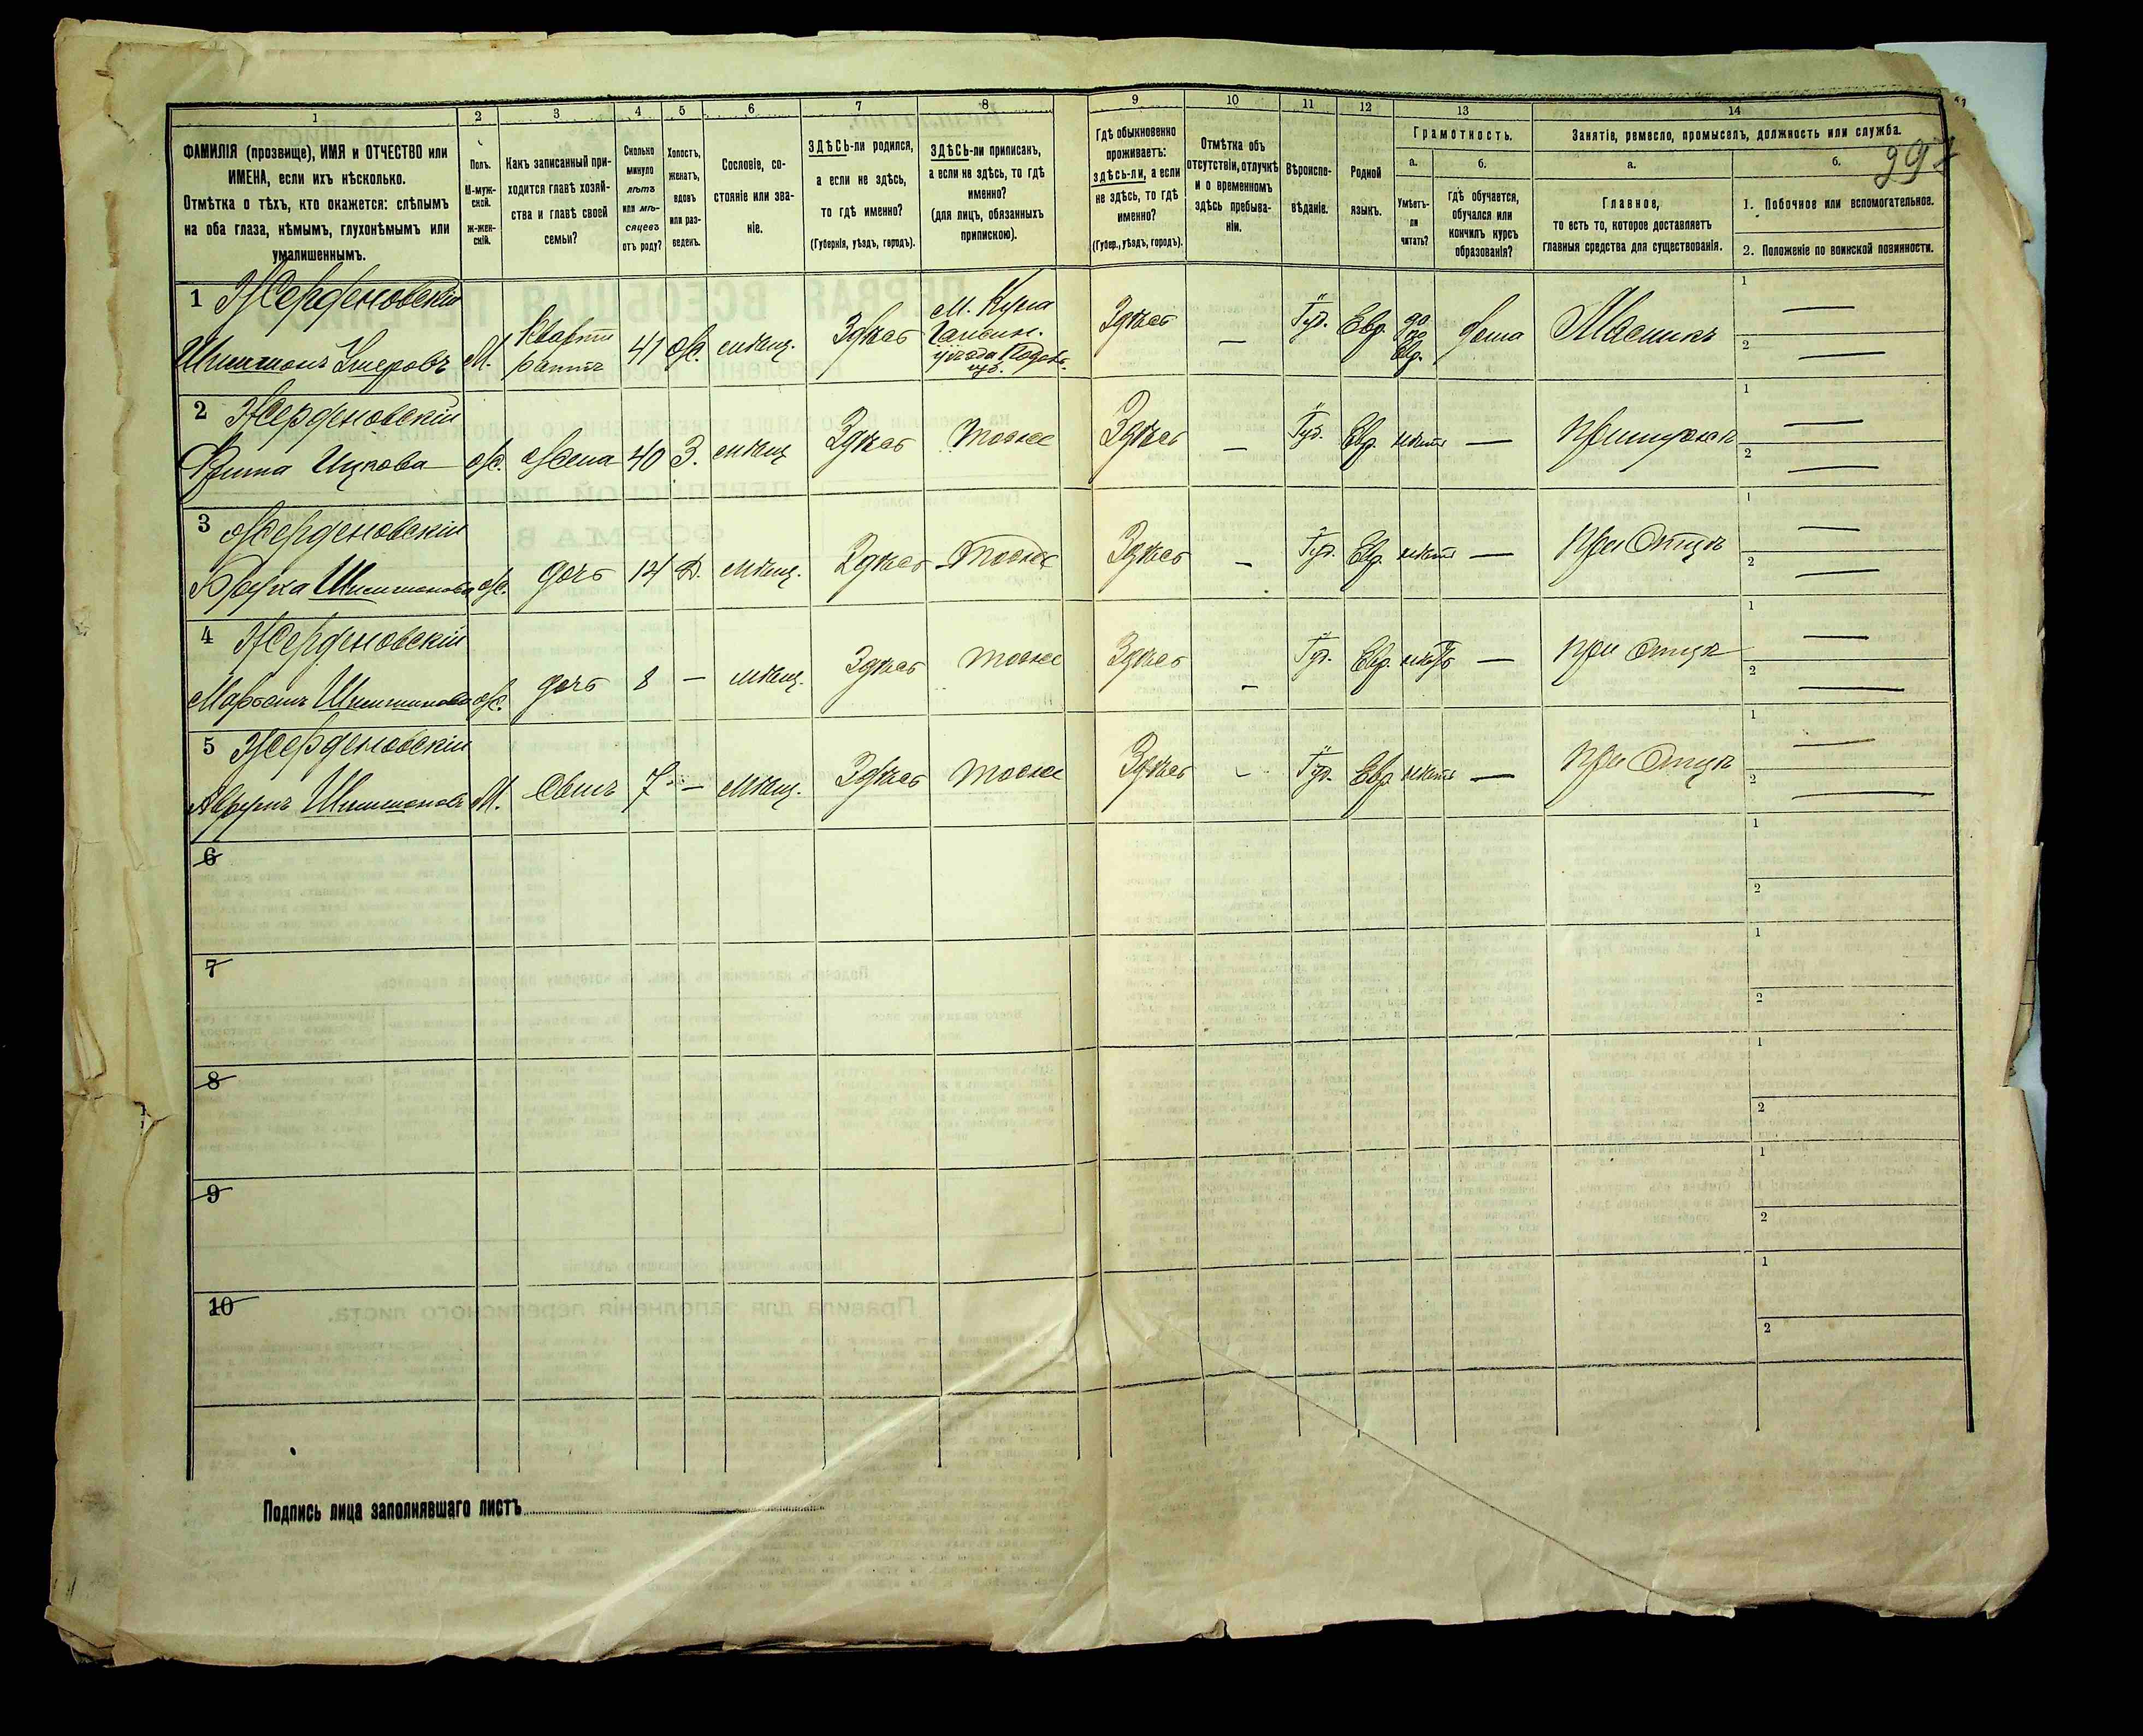 1 2 3 4 5 6 7 8 9 10 11 12 13 14
ФАМИЛІЯ (прозвище), ИМЯ и ОТЧЕСТВО или
ИМЕНА, если ихъ нѣсколько.
Отмѣтка о тѣхъ, кто окажется: слѣпымъ
на оба глаза, нѣмымъ, глухонѣмымъ или
умалишеннымъ.
Полъ.
М-муж-
ской.
ж-жен-
скій.
Какъ записанный при-
ходится главѣ хозяй-
ства и главѣ своей
семьи?
Сколько
минуло
лѣтъ
или мѣ-
сяцевъ
отъ роду?
Холостъ,
женатъ,
вдовъ
или раз-
веденъ.
Сословіе, со-
стояніе или зва-
ніе.
ЗДѢСЬ-ли родился,
а если не здѣсь,
то гдѣ именно?
(Губернія, уѣздъ, городъ).
ЗДѢСЬ-ли приписанъ,
а если не здѣсь, то гдѣ
именно?
(для лицъ, обязанныхъ
припискою).
Гдѣ обыкновенно
проживаетъ:
здѣсь-ли, а если
не здѣсь, то гдѣ
именно?
(Губер., уѣздъ, городъ).
Отмѣтка объ
отсутствіи, отлучкѣ
и о временномъ
здѣсь пребыва-
ніи.
Вѣроиспо-
вѣданіе.
Родной
языкъ.
Грамотность.
а.
Умѣетъ-
ли
читать?
б.
Гдѣ обучается,
обучался или
кончилъ курсъ
образованія?
Занятіе, ремесло, промыселъ, должность или служба.
а.
Главное,
то есть то, которое доставляетъ
главныя средства для существованія.
б.
1. Побочное или вспомогательное.
2. Положеніе по воинской повинности.
1 Жерденовскій
Шимшонъ М. 41 Ж. мѣщ. Здѣсь М. Куна Здѣсь — Іуд. Евр. да по Евр. дома 1 —
2 —
2 Жерденовскій
Ицкова Ж. Жена 40 З. мѣщ Здѣсь тоже Здѣсь — Іуд. Евр. нѣтъ — 1 —
2 —
3 Жерденовскій
Шимшонова Ж. дочь 14 Д. мѣщ. Здѣсь тоже Здѣсь — Іуд. Евр. нѣтъ — При Отцѣ 1 —
2 —
4 Жерденовскій
Шимшонова Ж. дочь 8 — мѣщ. Здѣсь тоже Здѣсь — Іуд. Евр. нѣтъ — При Отцѣ 1 —
2 —
5 Жерденовскій
Аврумъ Шимшоновъ М. Сынъ 7 — мѣщ. Здѣсь тоже Здѣсь — Іуд. Евр. нѣтъ — При Отцѣ 1 —
2 —
6 1
2
7 1
2
8 1
2
9 1
2
10 1
2
Подпись лица заполнявшаго листъ